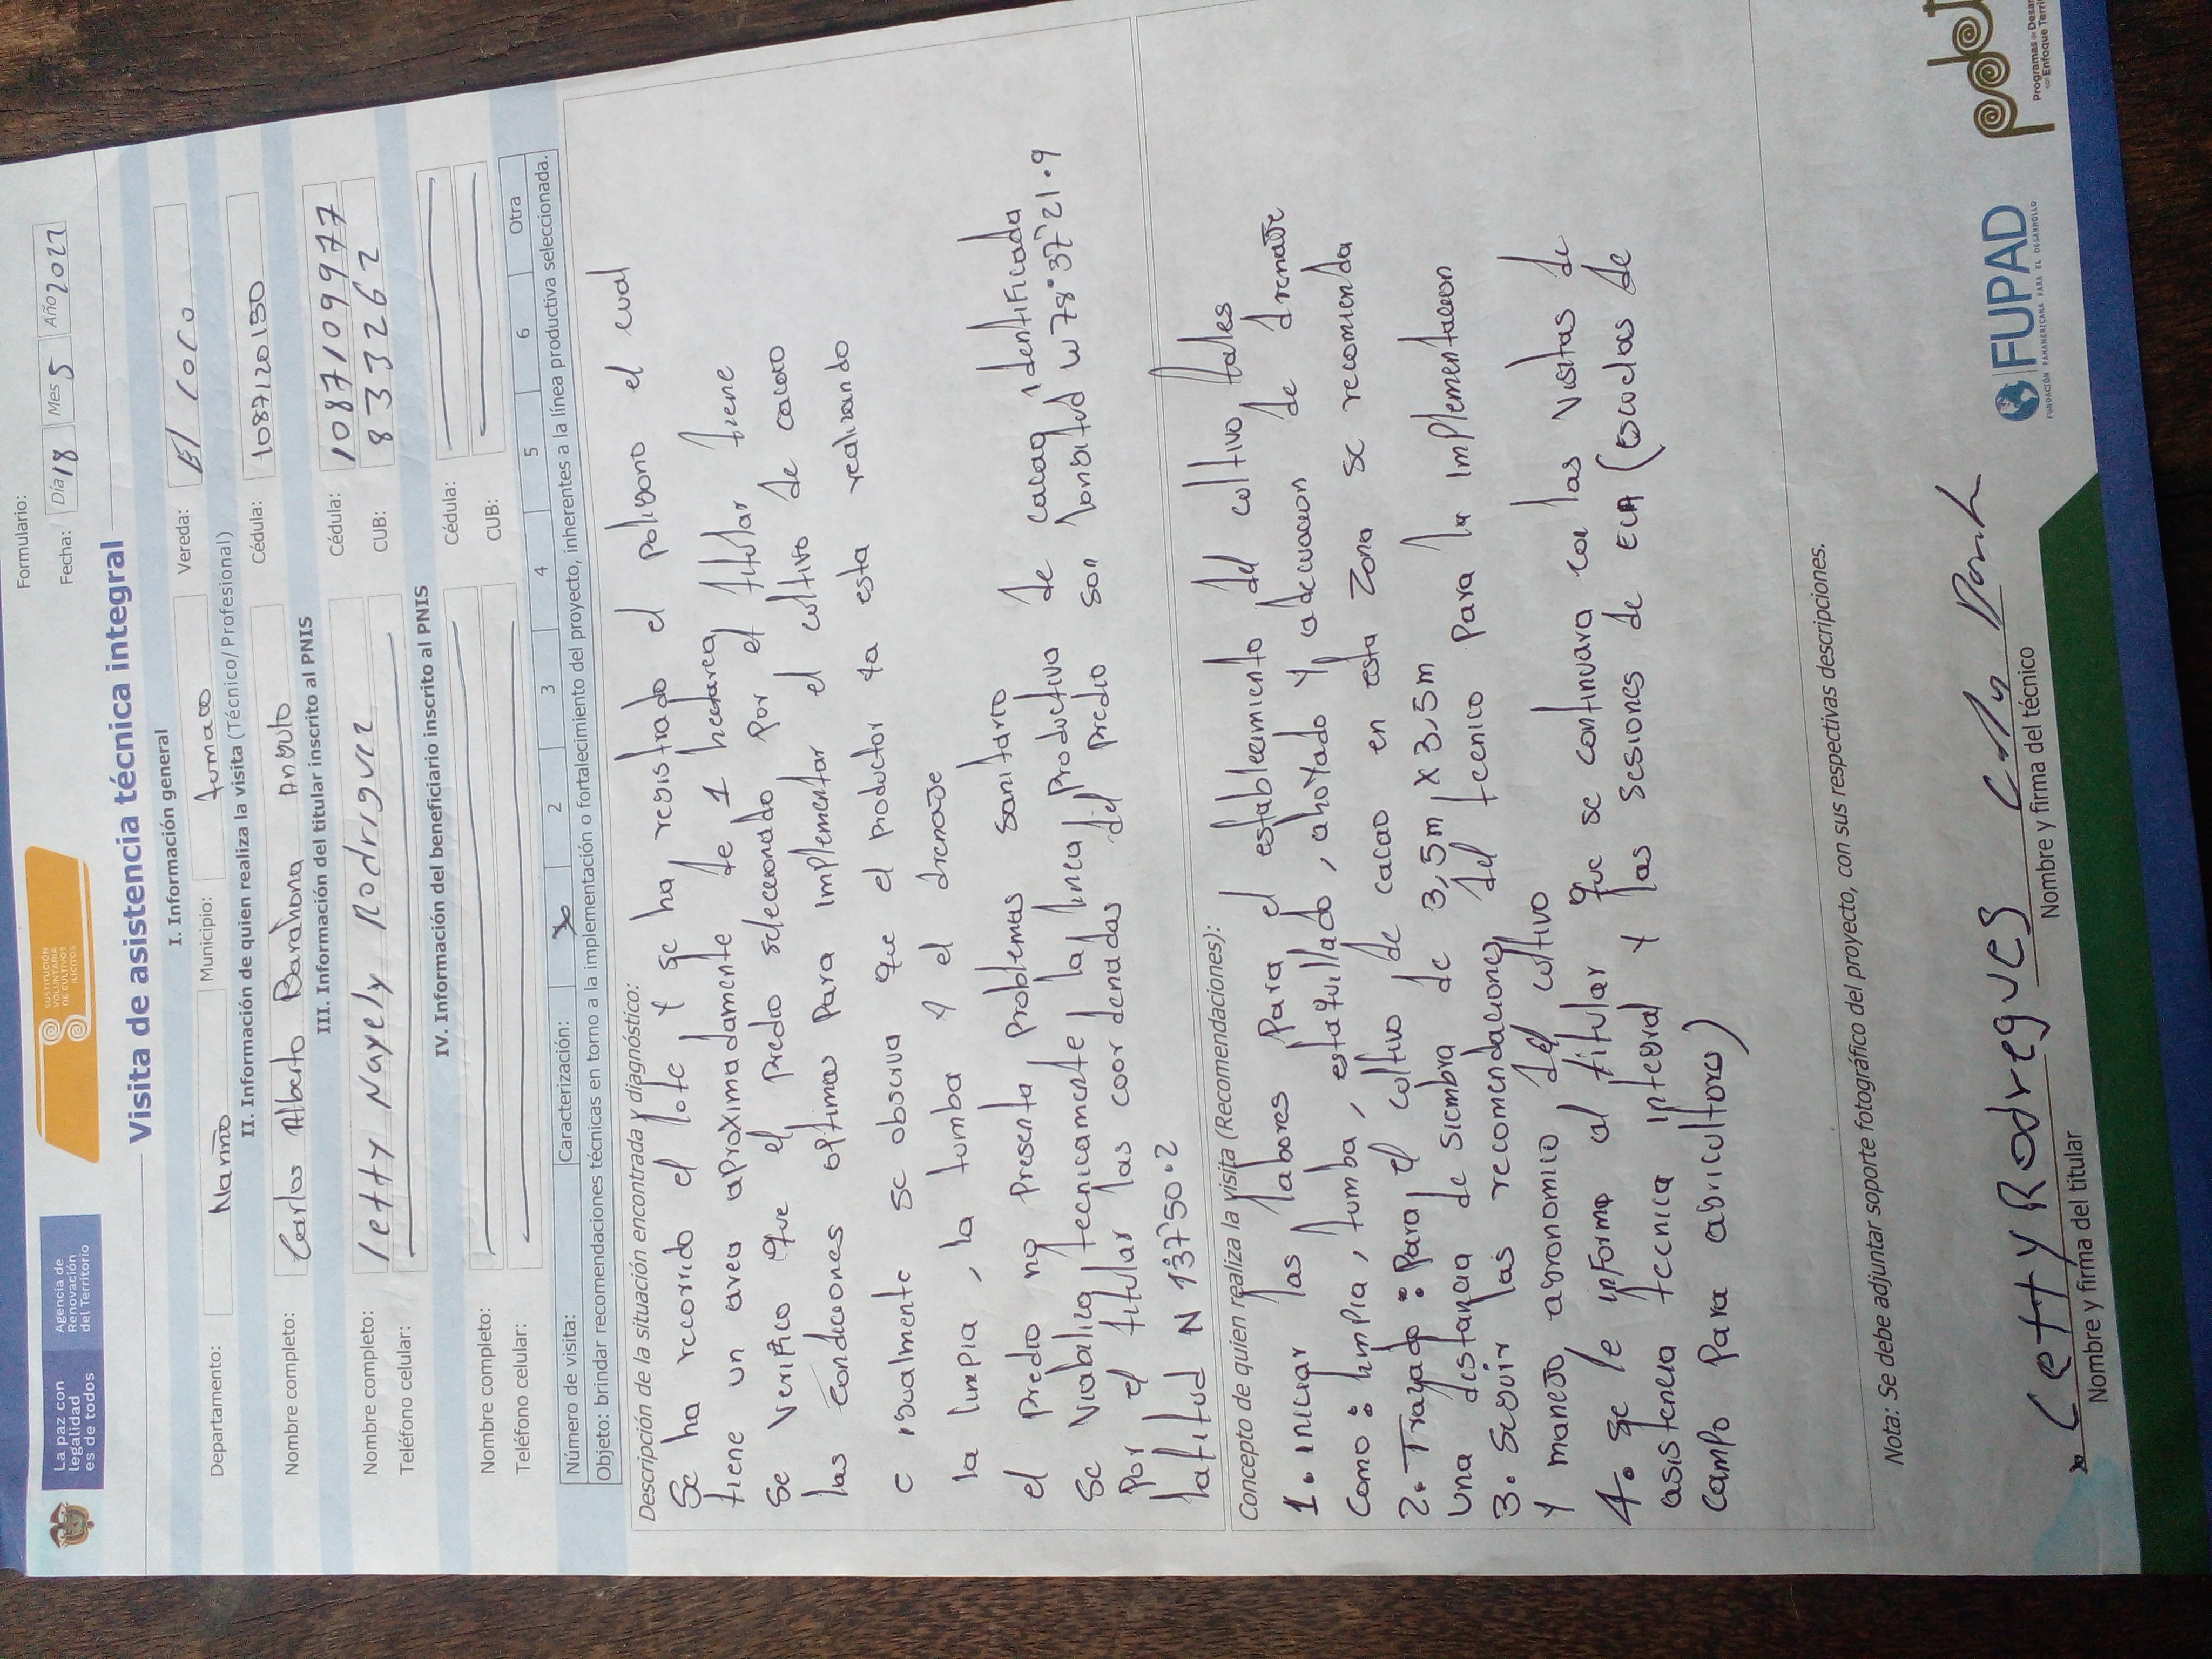 La paz con
legalidad
es de todos
Agencia de
Renovación
del Territorio
SUSTITUCIÓN
VOLUNTARIA
DE CULTIVOS
ILÍCITOS
Formulario:
Fecha: Día 18 Mes 5 Año 2021
Visita de asistencia técnica integral
I. Información general
Departamento: Nariño Municipio: tumaco Vereda: El coco
II. Información de quien realiza la visita (Técnico/Profesional)
Nombre completo: Carlos Alberto Barahona Angulo Cédula: 1087120150
III. Información del titular inscrito al PNIS
Nombre completo: letty Nayely Rodriguez Cédula: 1087109977
Teléfono celular: CUB: 833262
IV. Información del beneficiario inscrito al PNIS
Nombre completo: Cédula:
Teléfono celular: CUB:
Número de visita: Caracterización: X 2 3 4 5 6 Otra
Objeto: brindar recomendaciones técnicas en torno a la implementación o fortalecimiento del proyecto, inherentes a la línea productiva seleccionada.
Descripción de la situación encontrada y diagnóstico:
Se ha recorrido el lote y se ha registrado el poligono el cual
tiene un area aproximadamente de 1 hectarea
Se verifico que el predio seleccionado por el titular tiene
las condiciones optimas para implementar el cultivo de cacao
e igualmente se observa que el productor ya esta realizando
la limpia, la tumba y el drenaje
el predio no presenta problemas sanitario
Se viabiliza tecnicamente la linea productiva de cacao identificada
por el titular las coordenadas del predio son longitud W 78°37'21.9
latitud N 1°37'50.2
Concepto de quien realiza la visita (Recomendaciones):
1. iniciar las labores para el establecimiento del cultivo tales
como: limpia, tumba, estaquillado, ahoyado y adecuacion de drenaje
2. Trazado: Para el cultivo de cacao en esta zona se recomienda
una distancia de siembra de 3,5m x 3,5m
3. Seguir las recomendaciones del tecnico para la implementacion
y manejo agronomico del cultivo
4. se le informa al titular que se continuara con las visitas de
asistencia tecnica integral y las sesiones de ECA (escuelas de
campo para agricultores)
Nota: Se debe adjuntar soporte fotográfico del proyecto, con sus respectivas descripciones.
Letty Rodregues
Nombre y firma del titular
Nombre y firma del técnico
FUPAD
FUNDACIÓN PANAMERICANA PARA EL DESARROLLO
pdet
Programas de Desar
con Enfoque Territ